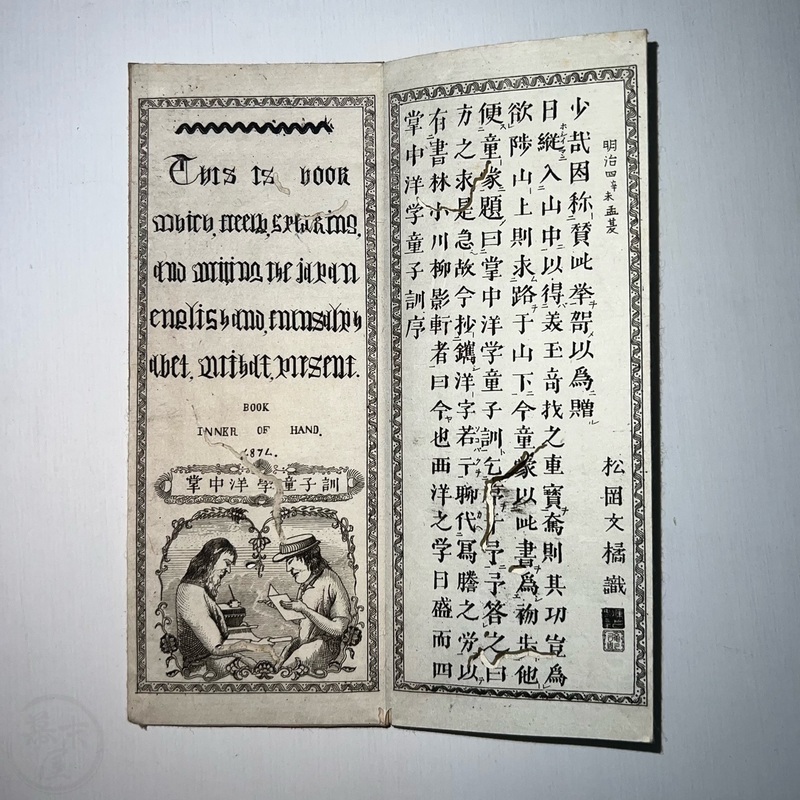 This is book
which, freely, spraking,
and writing the japan
english and,
abet, prisent.
BOOK
INNER OF HAND.
1872.
掌中洋學童子訓
掌中洋学童子訓序
有書林小川柳影軒者曰今也西洋之学日盛而四
方之求是急故今抄鐫洋字若干聊代寫謄之労以
便童蒙題曰掌中洋学童子訓乞序于予予答之曰
欲陟山上則求路于山下今童蒙以此書為初歩他
日縦入山中以得美玉奇找之重寶奪則其功豈為
少哉因称賛此挙以為贈
明治四辛未孟夏
松岡文橘識